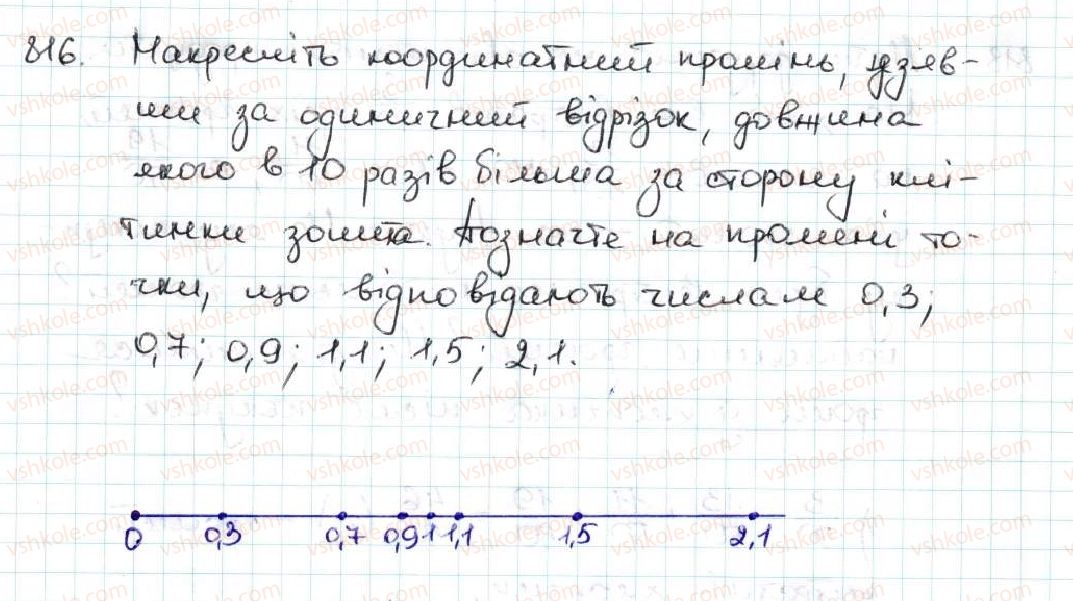 816. Накресліть координатний промінь, узяв-
ши за одиничний відрізок, довжина
якого в 10 разів більша за сторону клі-
тинки зошита. Позначте на промені то-
чки, що відповідають числам 0,3;
0,7; 0,9; 1,1; 1,5; 2,1.
0 0,3 0,7 0,9 1 1,1 1,5 2,1